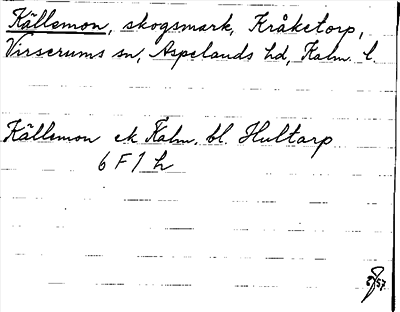 Källemon, skogsmark, Kråketorp,
Virserums sn, Aspelands hd, Kalm. l.
Källemon ek Kalm. bl. Hultarp
6 F 1 h